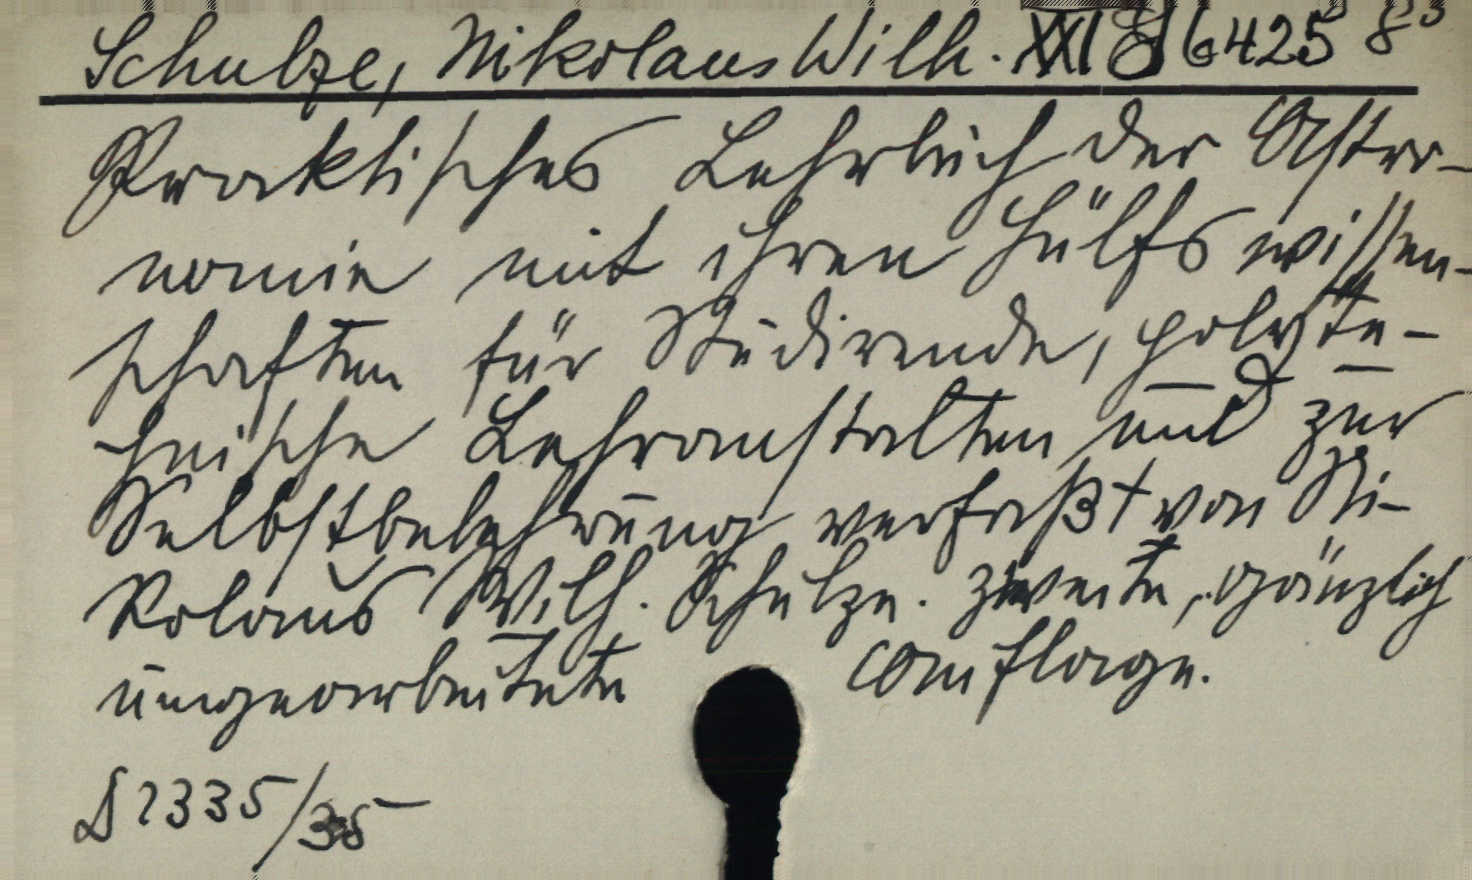 Schulze, Nikolaus Wilh. XXI 6425 8°
Praktisches Lehrbuch der Astro-
nomie mit ihren Hülfswissen-
schaften für Studirende, polyte-
chnische Lehranstalten und zur
Selbstbelehrung verfaßt von Ni-
kolaus Wilh. Schulze. Zweite, gänzlich
umgearbeitete Auflage.
2335/35